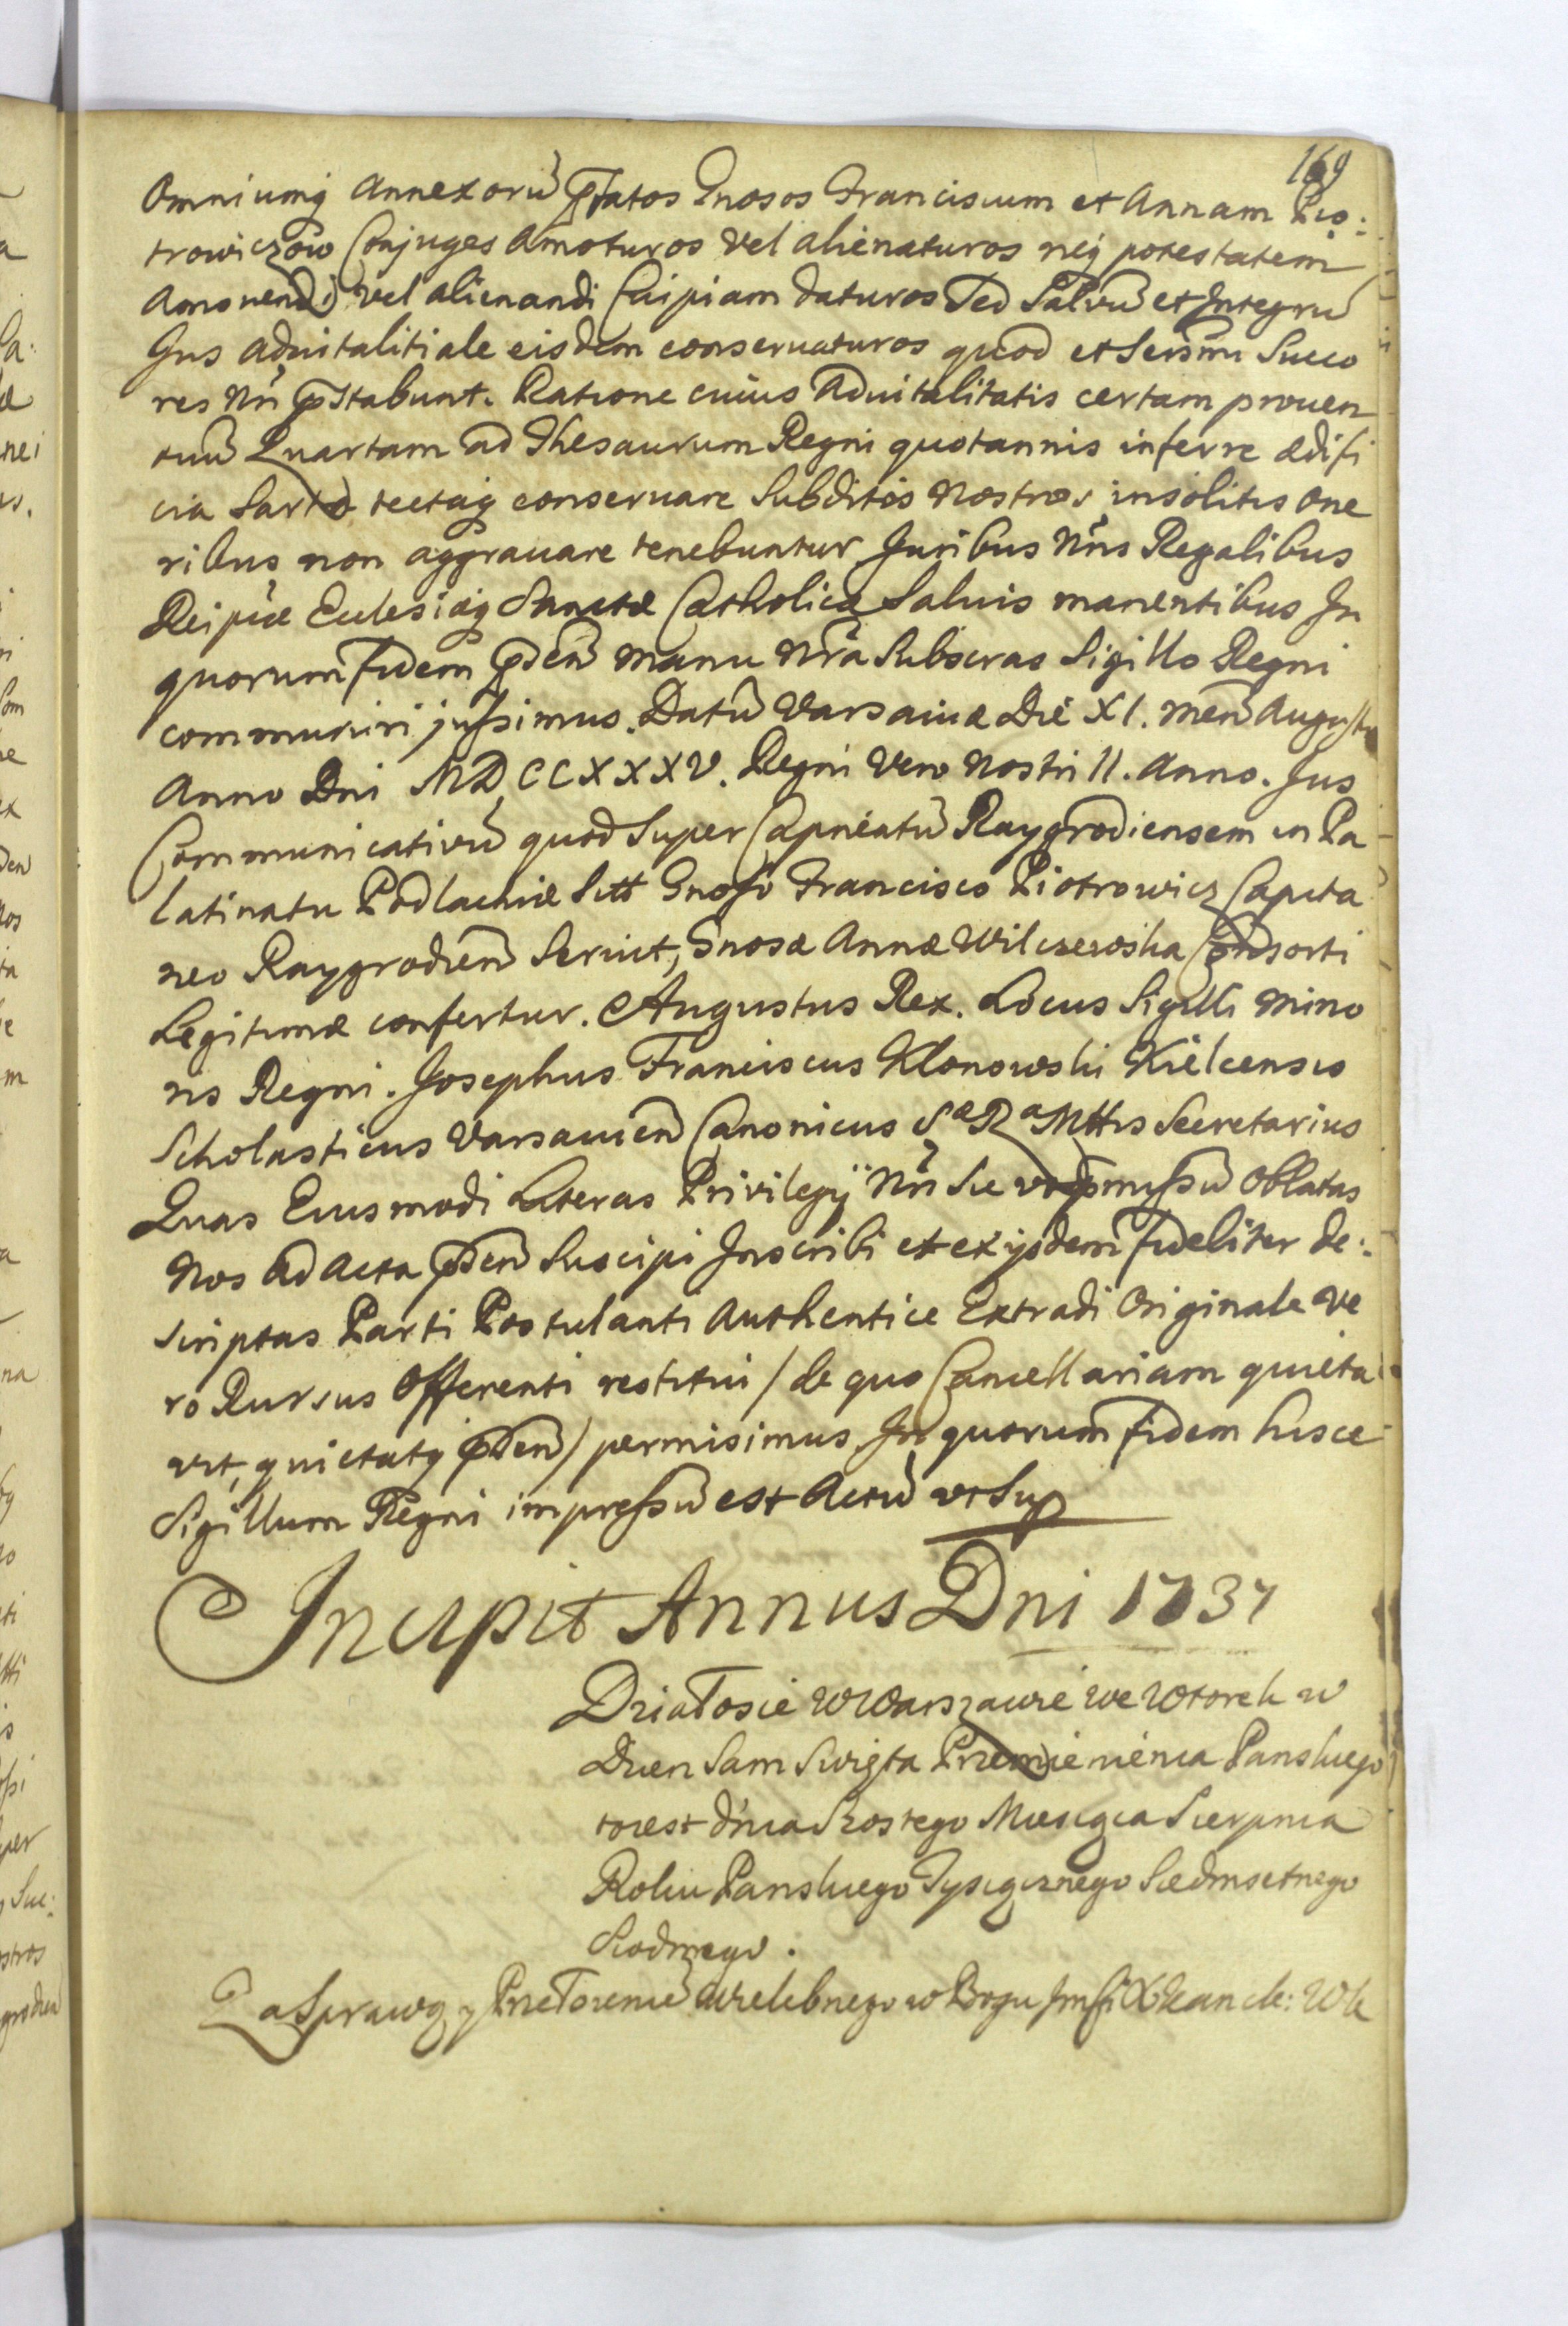 169
Omniumq̃ Annexorũ pr̃tatos Gnosos Franciscum et Annam Pio:
trowiczow Conjuges Amoturos Vel alienaturos neq̃ potestatem
Amovendi vel alienandi Cuipiam daturos Sed Salvũ et Integrũ
Jus advitalitiale eisdem conservaturos quod et Sersm̃i Succo
res Nr̃i pr̃stabunt. Ratione cuius Advitalitatis certam proven
tuũ Quartam ad Thesaurum Regni quotannis inferre ædifi
cia Sarta tectaq̃ conservare Subditos Nostros insolitis One
ribus non aggravare tenebuntur Juribus Nr̃is Regalibus
Reipcæ Eclesiæq̃ Sanctæ Catholicæ Salvis manentibus In
quorum fidem pr̃sen̄ manu Nr̃a Subscras Sigillo Regni
communiri jussimus. Datũ Varsaviæ Die XI. Men̄ Augusti
Anno Dni MDCCXXXV. Regni Vero Nostri II. Anno. Jus
Communicativũ quod Super Capneatũ Raygrodiensem in Pa
latinatu Podlachiæ Sitt Gnoso Francisco Piotrowicz Capita
neo Raygrodien̄ Servit, Gnosæ Annæ Wilczewska Consorti
Legitimæ confertur. Augustus Rex. Locus Sigilli Mino
ris Regni. Josephus Franciscus Klonowski Kielcensis
Scholasticus Varsavien̄ Canonicus Sæ Ræ Mttis Secretarius
Quas Eiusmodi Literas Privilegÿ Nr̃i Sic vt pr̃missũ Oblatas
Nos ad Acta pr̃sen̄ Suscipi Inscribi et ex ijsdem fideliter de:
scriptas Parti Postulanti Authentice Extradi Originale Ve
ro Rursus Offerenti restitui / de quo Cancellariam quieta
vit, quietatq̃ pr̃sen̄ / permisimus. In quorum fidem hisce
Sigillum Regni impressũ est Actũ vt Sup
Incipit Annus Dni 1737
Działosie w Warszawie we Wtorek w
Dzien Sam Swięta Przemienienia Panskiego
toiest dnia Szostego Miesiąca Sierpnia
Roku Panskiego Tysiącznego Siedmsetnego
Siodmego.
Za Sprawą y Przełozenie Wielebnego w Bogu Jmści X Kancle: Wk